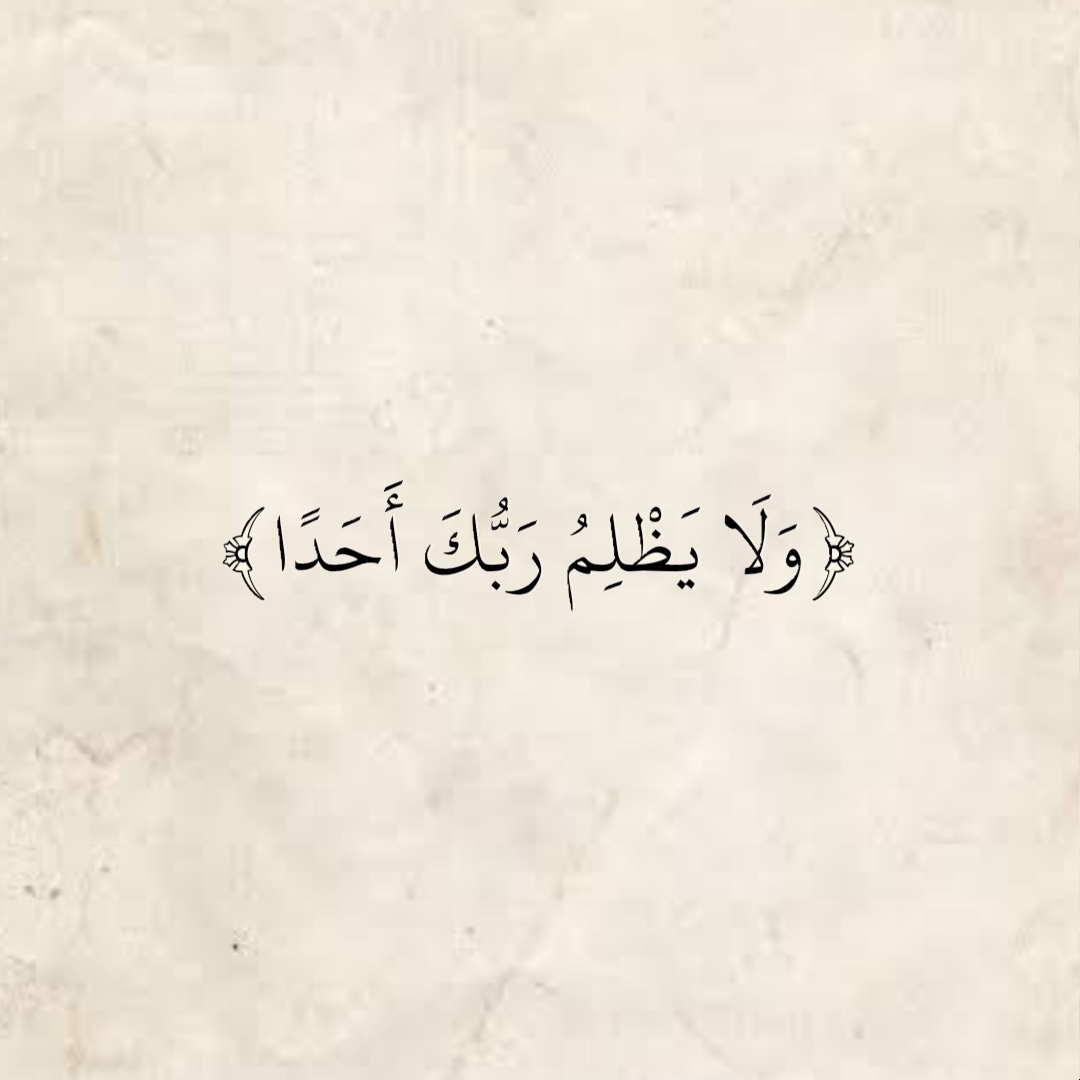 ﴿وَلَا يَظْلِمُ رَبُّكَ أَحَدًا﴾